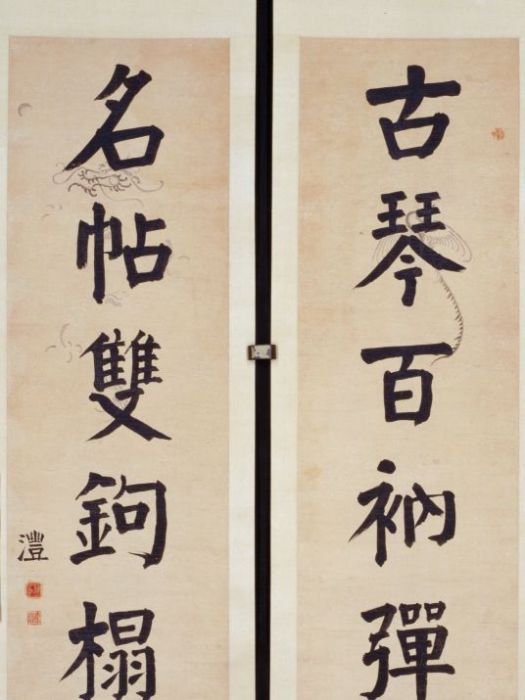 古琴百衲彈
名帖雙鉤榻
澧